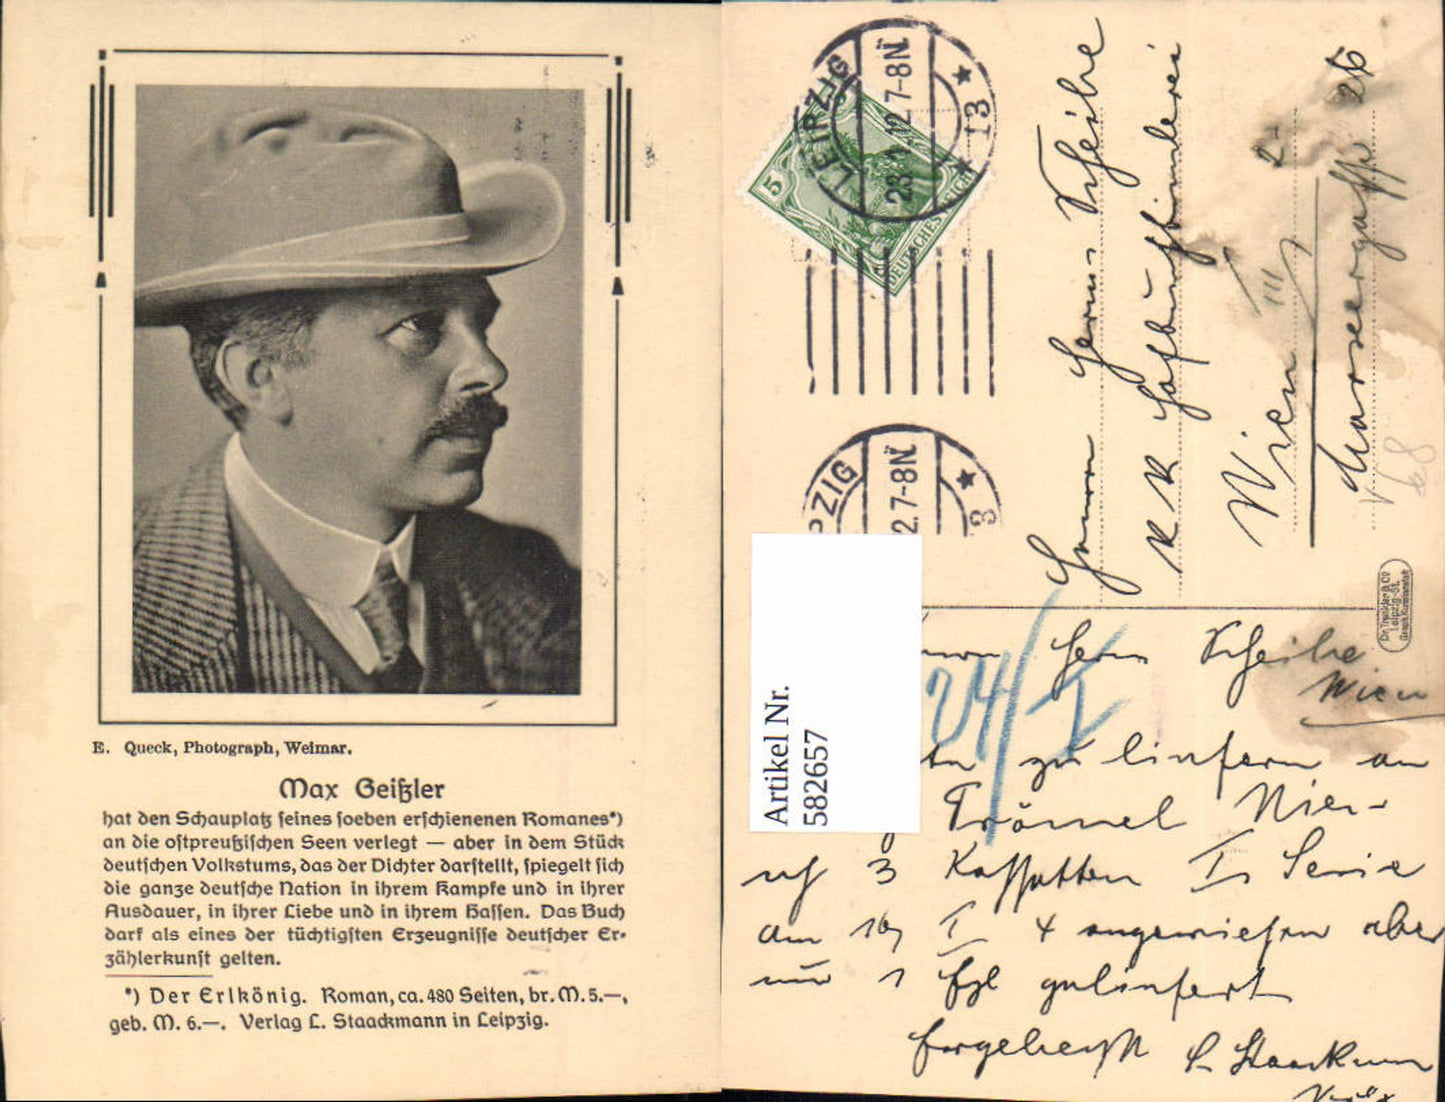 E. Queck, Photograph, Weimar.
Max Geißler
hat den Schauplatz seines soeben erschienenen Romanes*)
an die ostpreußischen Seen verlegt — aber in dem Stück
deutschen Volkstums, das der Dichter darstellt, spiegelt sich
die ganze deutsche Nation in ihrem Kampfe und in ihrer
Ausdauer, in ihrer Liebe und in ihrem Hassen. Das Buch
darf als eines der tüchtigsten Erzeugnisse deutscher Er-
zählerkunst gelten.
*) Der Erlkönig. Roman, ca. 480 Seiten, br. M. 5.—,
geb. M. 6.—. Verlag L. Staackmann in Leipzig.
LEIPZIG
12.7-8N.
* 13
5
DEUTSCHES REICH
PZIG
2.7-8N.
* 3
Herrn Scheibe
K K Hofbuchbinderei
Wien III
2-
Marxergasse 26
68
Dr. Trenkler & Co
Leipzig-St.
Graph. Kunstanstalt
Artikel Nr.
582657
Herrn Scheibe
Wien
24/I
zu liefern an
Trömel Wien
3 Kassetten I. Serie
am 10/I 4 angewiesen aber
nur 1 Exl geliefert
L Staackmann